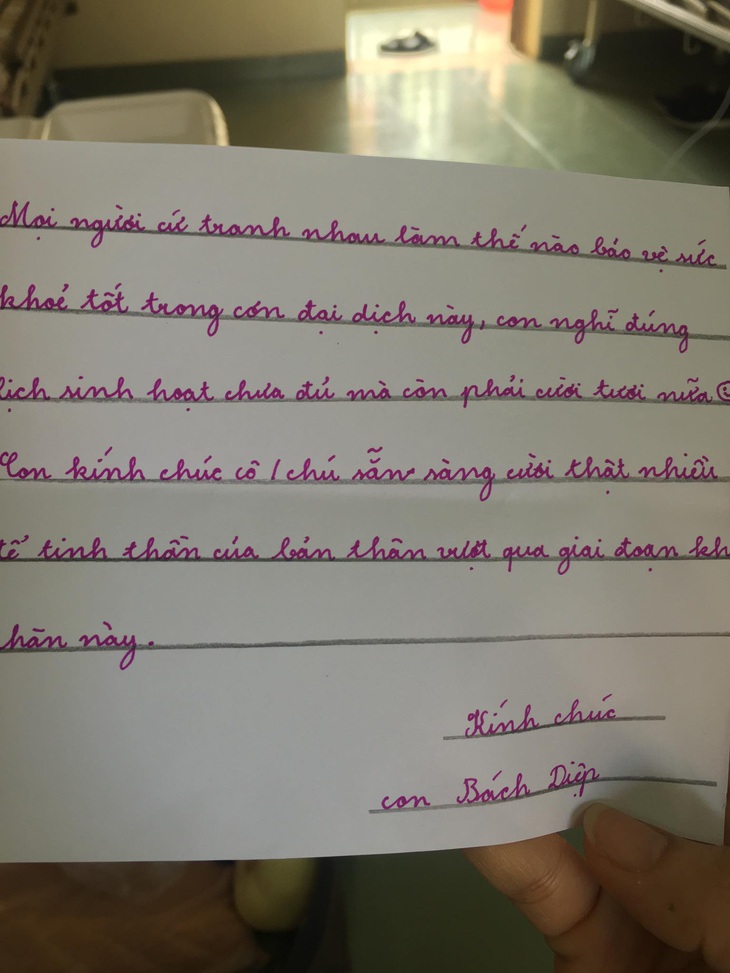 Mọi người cứ tranh nhau làm thế nào bảo vệ sức
khoẻ tốt trong cơn đại dịch này, con nghĩ đúng
lịch sinh hoạt chưa đủ mà còn phải cười tươi nữa ☺
Con kính chúc cô / chú sẵn sàng cười thật nhiều
để tinh thần của bản thân vượt qua giai đoạn kh
hăn này.
Kính chúc
con Bách Diệp